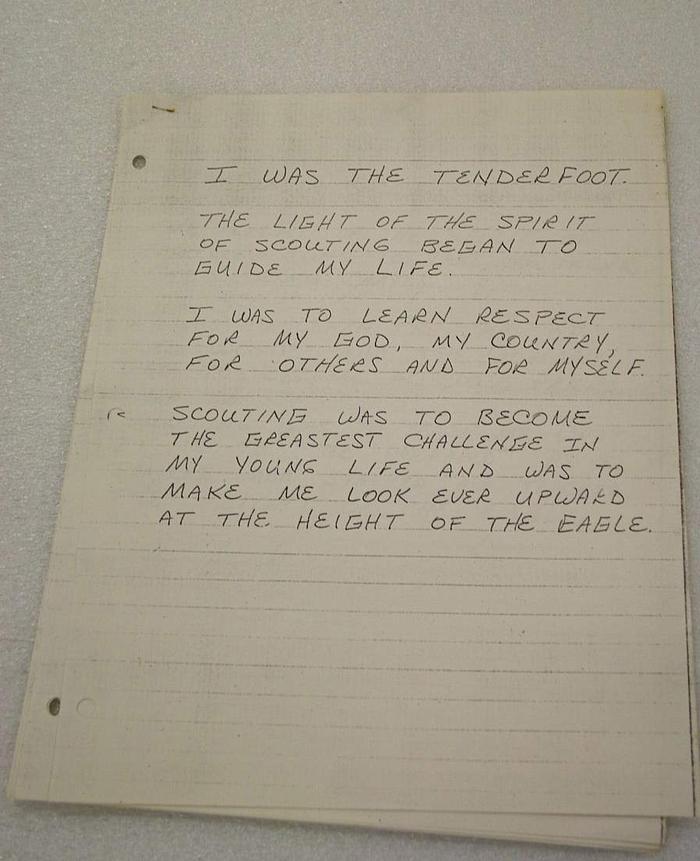 I WAS THE TENDERFOOT.
THE LIGHT OF THE SPIRIT
OF SCOUTING BEGAN TO
GUIDE MY LIFE.
I WAS TO LEARN RESPECT
FOR MY GOD, MY COUNTRY,
FOR OTHERS AND FOR MYSELF.
SCOUTING WAS TO BECOME
THE GREASTEST CHALLENGE IN
MY YOUNG LIFE AND WAS TO
MAKE ME LOOK EVER UPWARD
AT THE HEIGHT OF THE EAGLE.